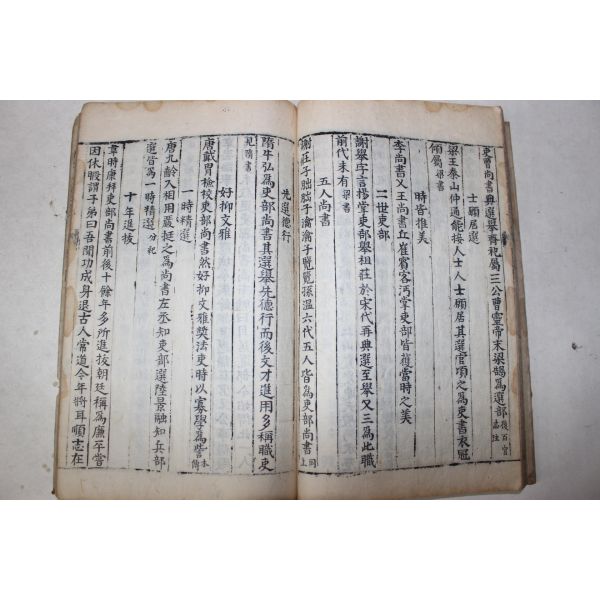 吏曹尚書典選舉齋祀屬三公曹靈帝末梁鵠為選部後百官志注
士願居選
梁王泰山仲通能接人士人士願居其選官項之為吏書衣冠
傾屬梁書
時皆推美
李尚書乂王尚書丘崔賓客沔掌吏部皆獲當時之美
二世吏部
謝舉字言揚堂吏部舉祖莊於宋代再典選至舉又三為此職
前代未有梁書
五人尚書
謝莊子朏朏子瀹瀹子覽覽孫溫六代五人皆為吏部尚書同上
先選德行
隋牛弘為吏部尚書其選舉先德行而後文才進用多稱職吏
見隋書
好抑文雅
唐戴胄檢校吏部尚書然好抑文雅獎法吏時以寡學為訾本傳
一時精選
唐九齡入相用嚴挺之為尚書左丞知吏部選陸景融知兵部
選皆為一時精選分紀
十年進拔
韋時康拜吏部尚書前後十餘年多所進拔朝廷稱為廉平嘗
因休暇謂子弟曰吾聞功成身退古人常道今年將耳順志在